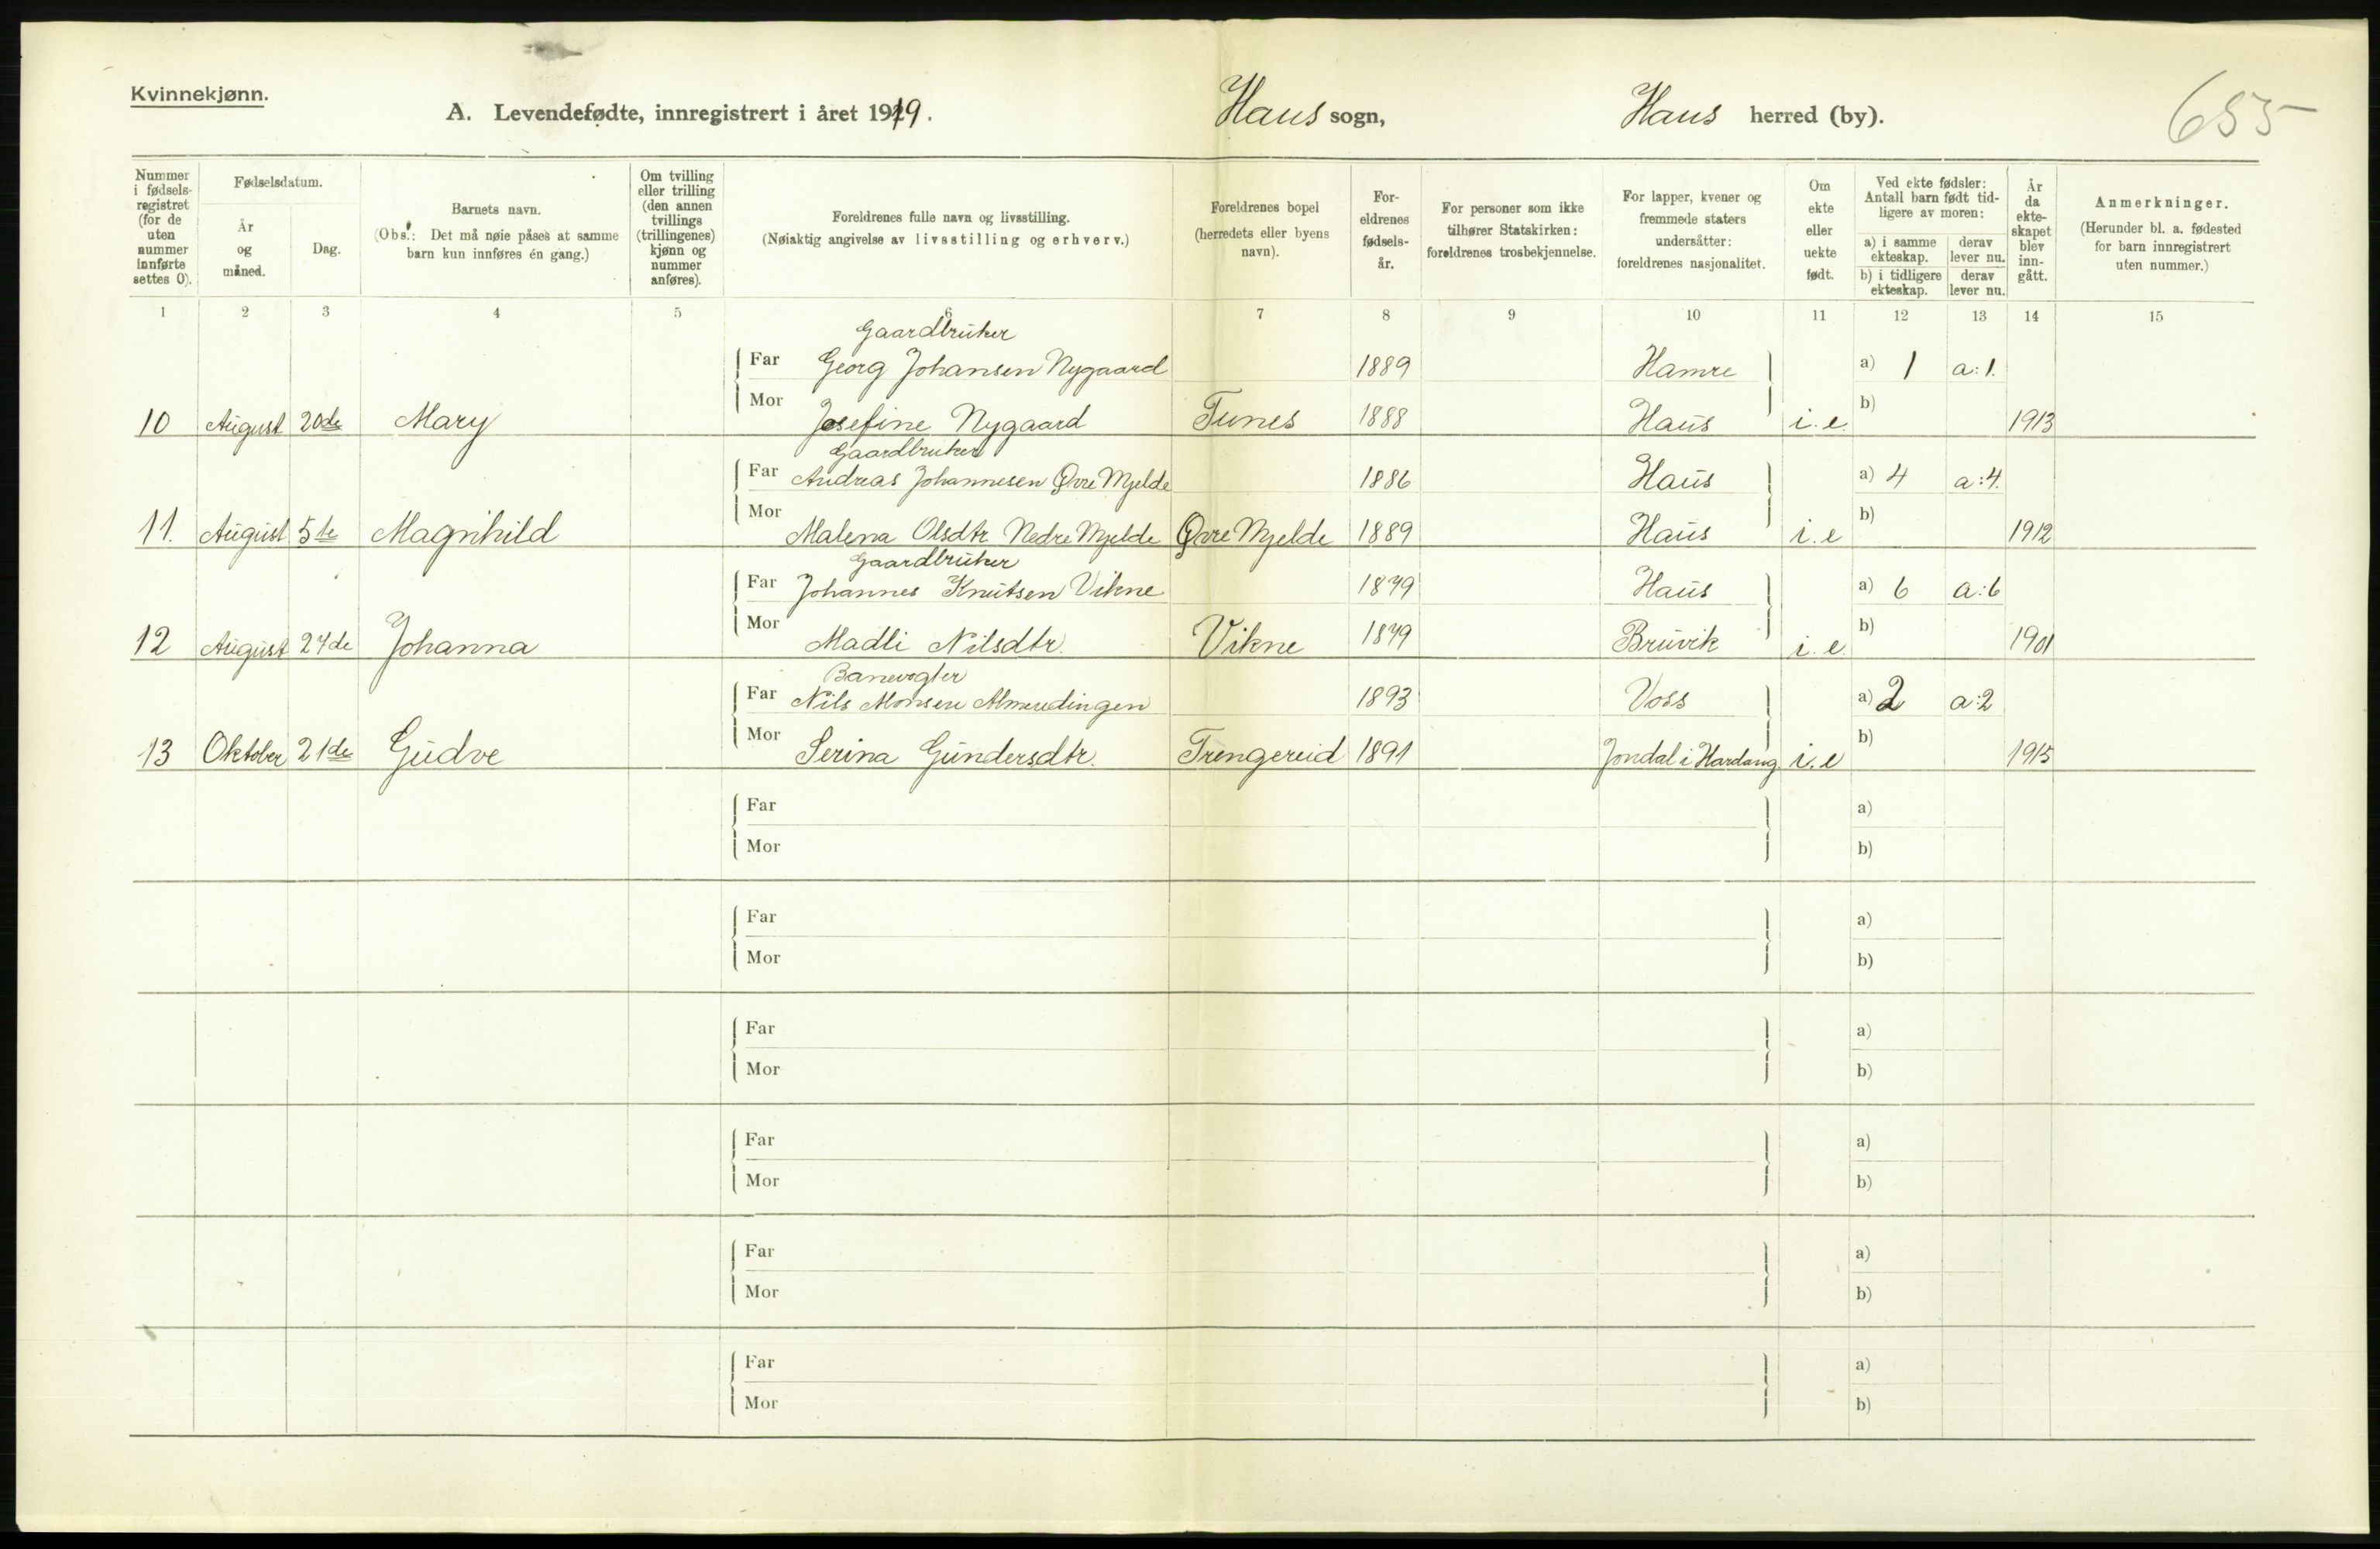 Kvinnekjønn.
A. Levendefødte, innregistrert i året 1919. Haus sogn, Haus herred (by). 655
Nummer i fødselsregistret (for de uten nummer innførte settes 0).
Fødselsdatum.
År og måned.
Dag.
Barnets navn.
(Obs.: Det må nøie påses at samme barn kun innføres én gang.)
Om tvilling eller trilling (den annen tvillings (trillingenes) kjønn og nummer anføres).
Foreldrenes fulle navn og livsstilling.
(Nøiaktig angivelse av livsstilling og erhverv.)
Foreldrenes bopel (herredets eller byens navn).
Foreldrenes fødselsår.
For personer som ikke tilhører Statskirken: foreldrenes trosbekjennelse.
For lapper, kvener og fremmede staters undersåtter: foreldrenes nasjonalitet.
Om ekte eller uekte født.
Ved ekte fødsler: Antall barn født tidligere av moren:
a) i samme ekteskap. derav lever nu.
b) i tidligere ekteskap. derav lever nu.
År da ekteskapet blev inngått.
Anmerkninger.
(Herunder bl. a. fødested for barn innregistrert uten nummer.)
1 2 3 4 5 6 7 8 9 10 11 12 13 14 15
Gaardbruker
Far Georg Johansen Nygaard 1889 Hamre a) 1 a:1.
10 August 20de Mary Mor Josefine Nygaard Tunes 1888 Haus i.e. b) 1913
Gaardbruker
Far Andreas Johannesen Øvre Mjelde 1886 Haus a) 4 a:4.
11. August 5te Magnhild Mor Malena Olsdtr Nedre Mjelde Øvre Mjelde 1889 Haus i.e b) 1912
Gaardbruker
Far Johannes Knutsen Vikne 1879 Haus a) 6 a:6
12 August 27de Johanna Mor Madli Nilsdtr. Vikne 1879 Bruvik i.e. b) 1901
Banevogter
Far Nils Monsen Almendingen 1893 Voss a) 2 a:2
13 Oktober 21de Gudve Mor Serina Gundersdtr. Trengereid 1891 Jondal i Hardang. i.e b) 1915
Far a)
Mor b)
Far a)
Mor b)
Far a)
Mor b)
Far a)
Mor b)
Far a)
Mor b)
Far a)
Mor b)